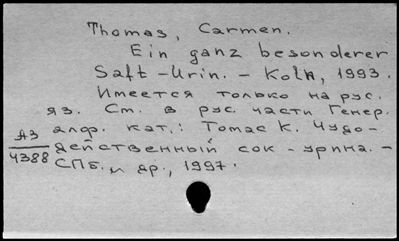 Thomas, Carmen.
Ein ganz besonderer
Saft - Urin. - Koln, 1993.
Имеется только на рус.
яз. См. в рус. части Генер.
алф. кат.: Томас К. Чудо-
действенный сок - урина. -
СПб. и др., 1997.
А3
4388